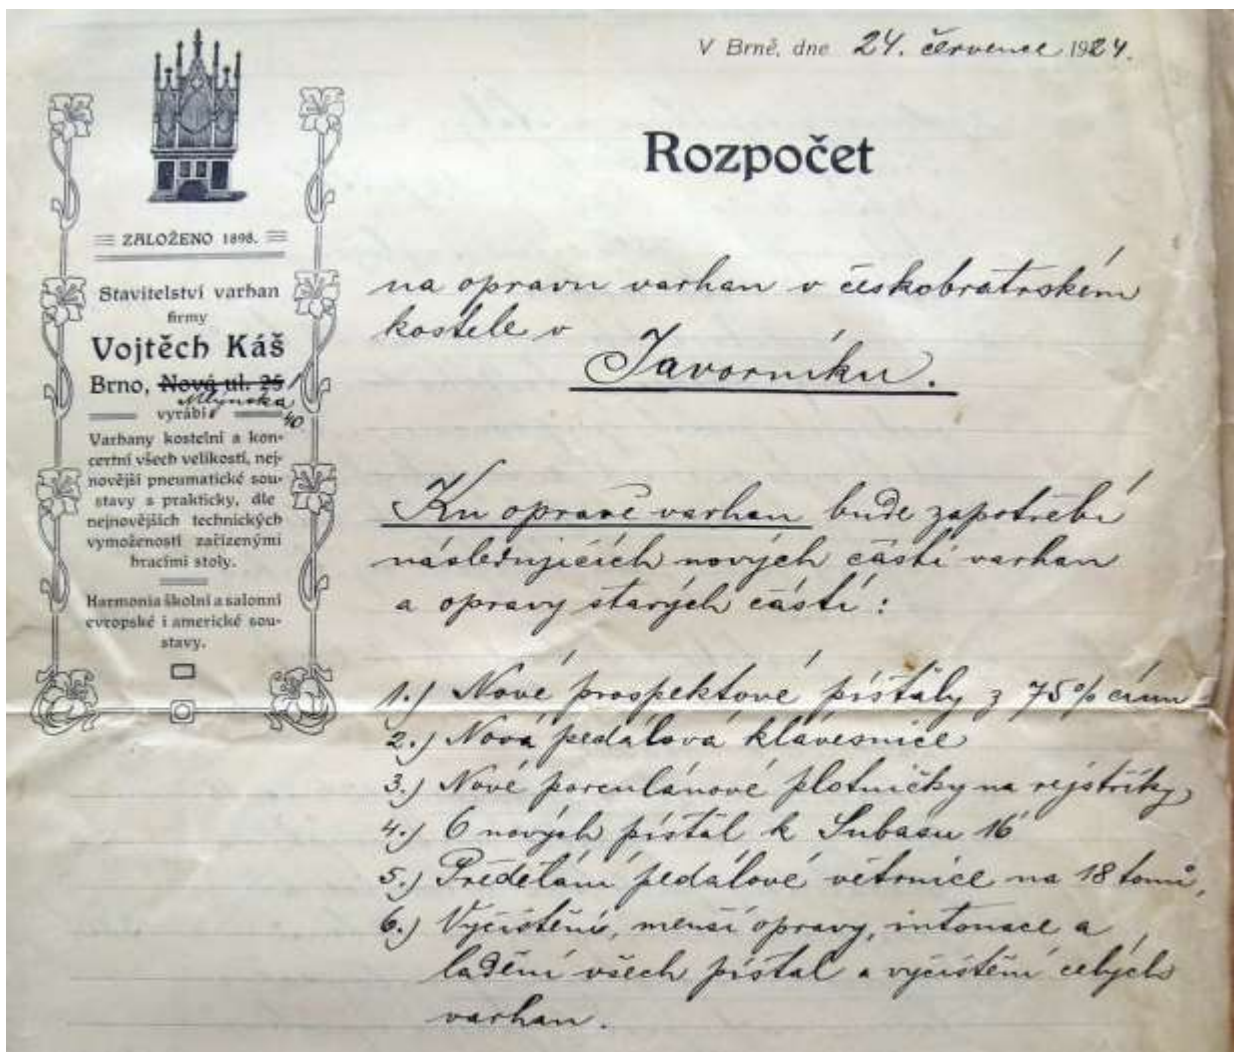 V Brně, dne 24. července 1924.
Rozpočet
ZALOŽENO 1898.
Stavitelství varhan
firmy
Vojtěch Káš
Brno, Nová ul. 25
Mlýnská
40
vyrábí
Varhany kostelní a kon-
certní všech velikostí, nej-
novější pneumatické sou-
stavy s prakticky, dle
nejnovějších technických
vymožeností zařízenými
hracími stoly.
Harmonia školní a salonní
evropské i americké sou-
stavy.
na opravu varhan v českobratrském
kostele v
Javorníku.
Ku opravě varhan bude zapotřebí
následujících nových částí varhan
a opravy starých částí:
1.) Nové prospektové píšťaly z 75% cínu
2.) Nová pedálová klávesnice
3.) Nové porculánové plotničky na rejstříky,
4.) 6 nových píšťal k Subasu 16'
5.) Předělání pedálové větrnice na 18 tonů,
6.) Vyčistění, menší opravy, intonace a
ladění všech píšťal a vyčistění celých
varhan.